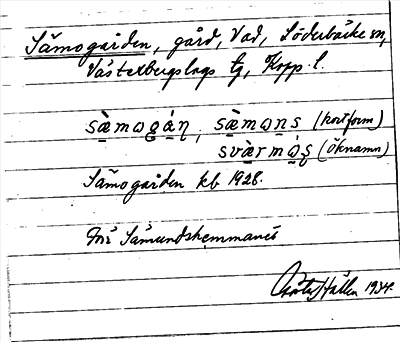 Sämogården, gård, Vad, Söderbärke sn,
Västerbergslags tg, Kopp. l.
sæ̀mωgáη, sæ̀mωns (kortform)
svæ̀rmὼȿ (öknamn)
Sämogården kb 1928.
Sämundshemmanet
Gösta Hallén 1934.